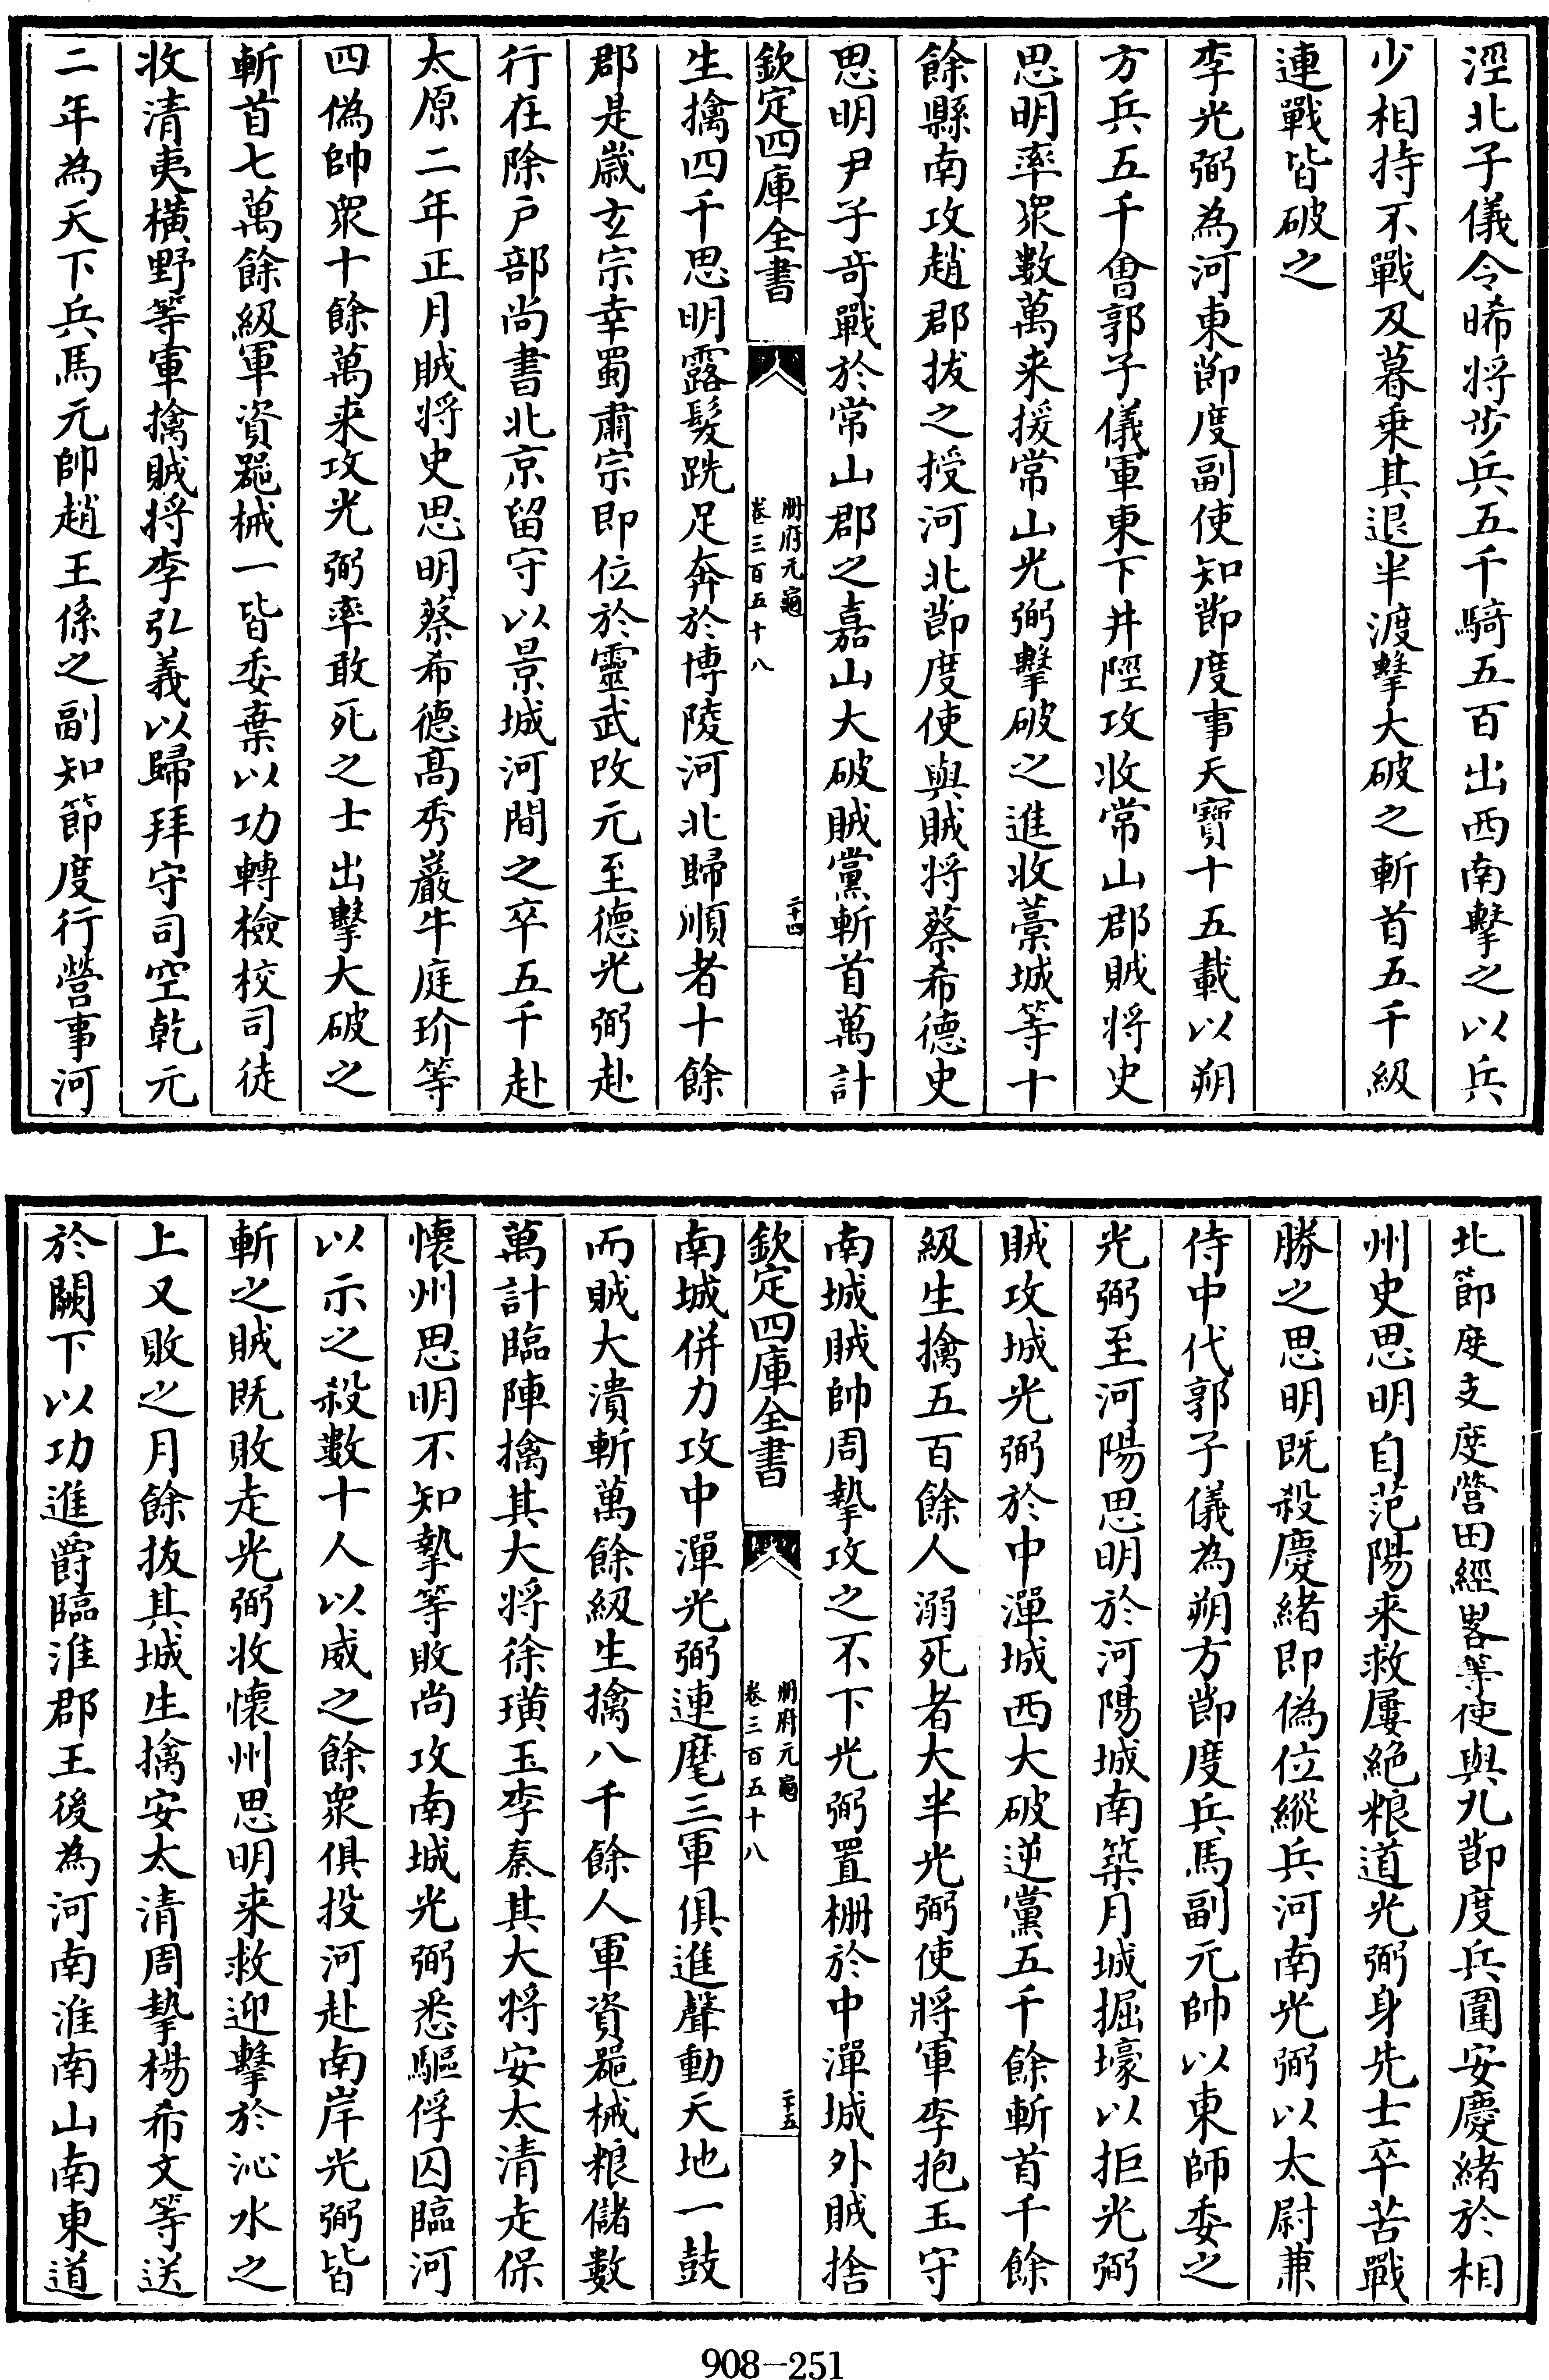 涇北子儀令晞将步兵五千騎五百出西南擊之以兵
少相持不戰及暮乗其退半渡擊大破之斬首五千級
連戰皆破之
李光弼為河東節度副使知節度事天寶十五載以朔
方兵五千會郭子儀軍東下井陘攻收常山郡賊将史
思明率衆數萬来援常山光弼擊破之進收藁城等十
餘縣南攻趙郡拔之授河北節度使與賊将蔡希德史
思明尹子竒戰於常山郡之嘉山大破賊黨斬首萬計
欽定四庫全書
册府元龜
卷三百五十八
二十四
生擒四千思明露髮跣足奔於博陵河北歸順者十餘
郡是歲玄宗幸蜀肅宗即位於靈武改元至德光弼赴
行在除户部尚書北京留守以景城河間之卒五千赴
太原二年正月賊将史思明蔡希德髙秀巖牛庭玠等
四偽帥衆十餘萬来攻光弼率敢死之士出擊大破之
斬首七萬餘級軍資噐械一皆委棄以功轉檢校司徒
收清夷横野等軍擒賊将李弘義以歸拜守司空乾元
二年為天下兵馬元帥趙王係之副知節度行營事河
北節度支度營田經畧等使與九節度兵圍安慶緒於相
州史思明自范陽来救屢絶粮道光弼身先士卒苦戰
勝之思明既殺慶緒即偽位縱兵河南光弼以太尉兼
侍中代郭子儀為朔方節度兵馬副元帥以東師委之
光弼至河陽思明於河陽城南築月城掘壕以拒光弼
賊攻城光弼於中潬城西大破逆黨五千餘斬首千餘
級生擒五百餘人溺死者大半光弼使将軍李抱玉守
南城賊帥周摯攻之不下光弼置柵於中潬城外賊捨
欽定四庫全書
册府元龜
卷三百五十八
二十五
南城併力攻中潬光弼連麾三軍俱進聲動天地一鼓
而賊大潰斬萬餘級生擒八千餘人軍資噐械粮儲數
萬計臨陣擒其大将徐璜玉李秦其大将安太清走保
懐州思明不知摯等敗尚攻南城光弼悉驅俘囚臨河
以示之殺數十人以威之餘衆俱投河赴南岸光弼皆
斬之賊既敗走光弼收懐州思明来救迎擊於沁水之
上又敗之月餘拔其城生擒安太清周摯楊希文等送
於闕下以功進爵臨淮郡王後為河南淮南山南東道
908-251